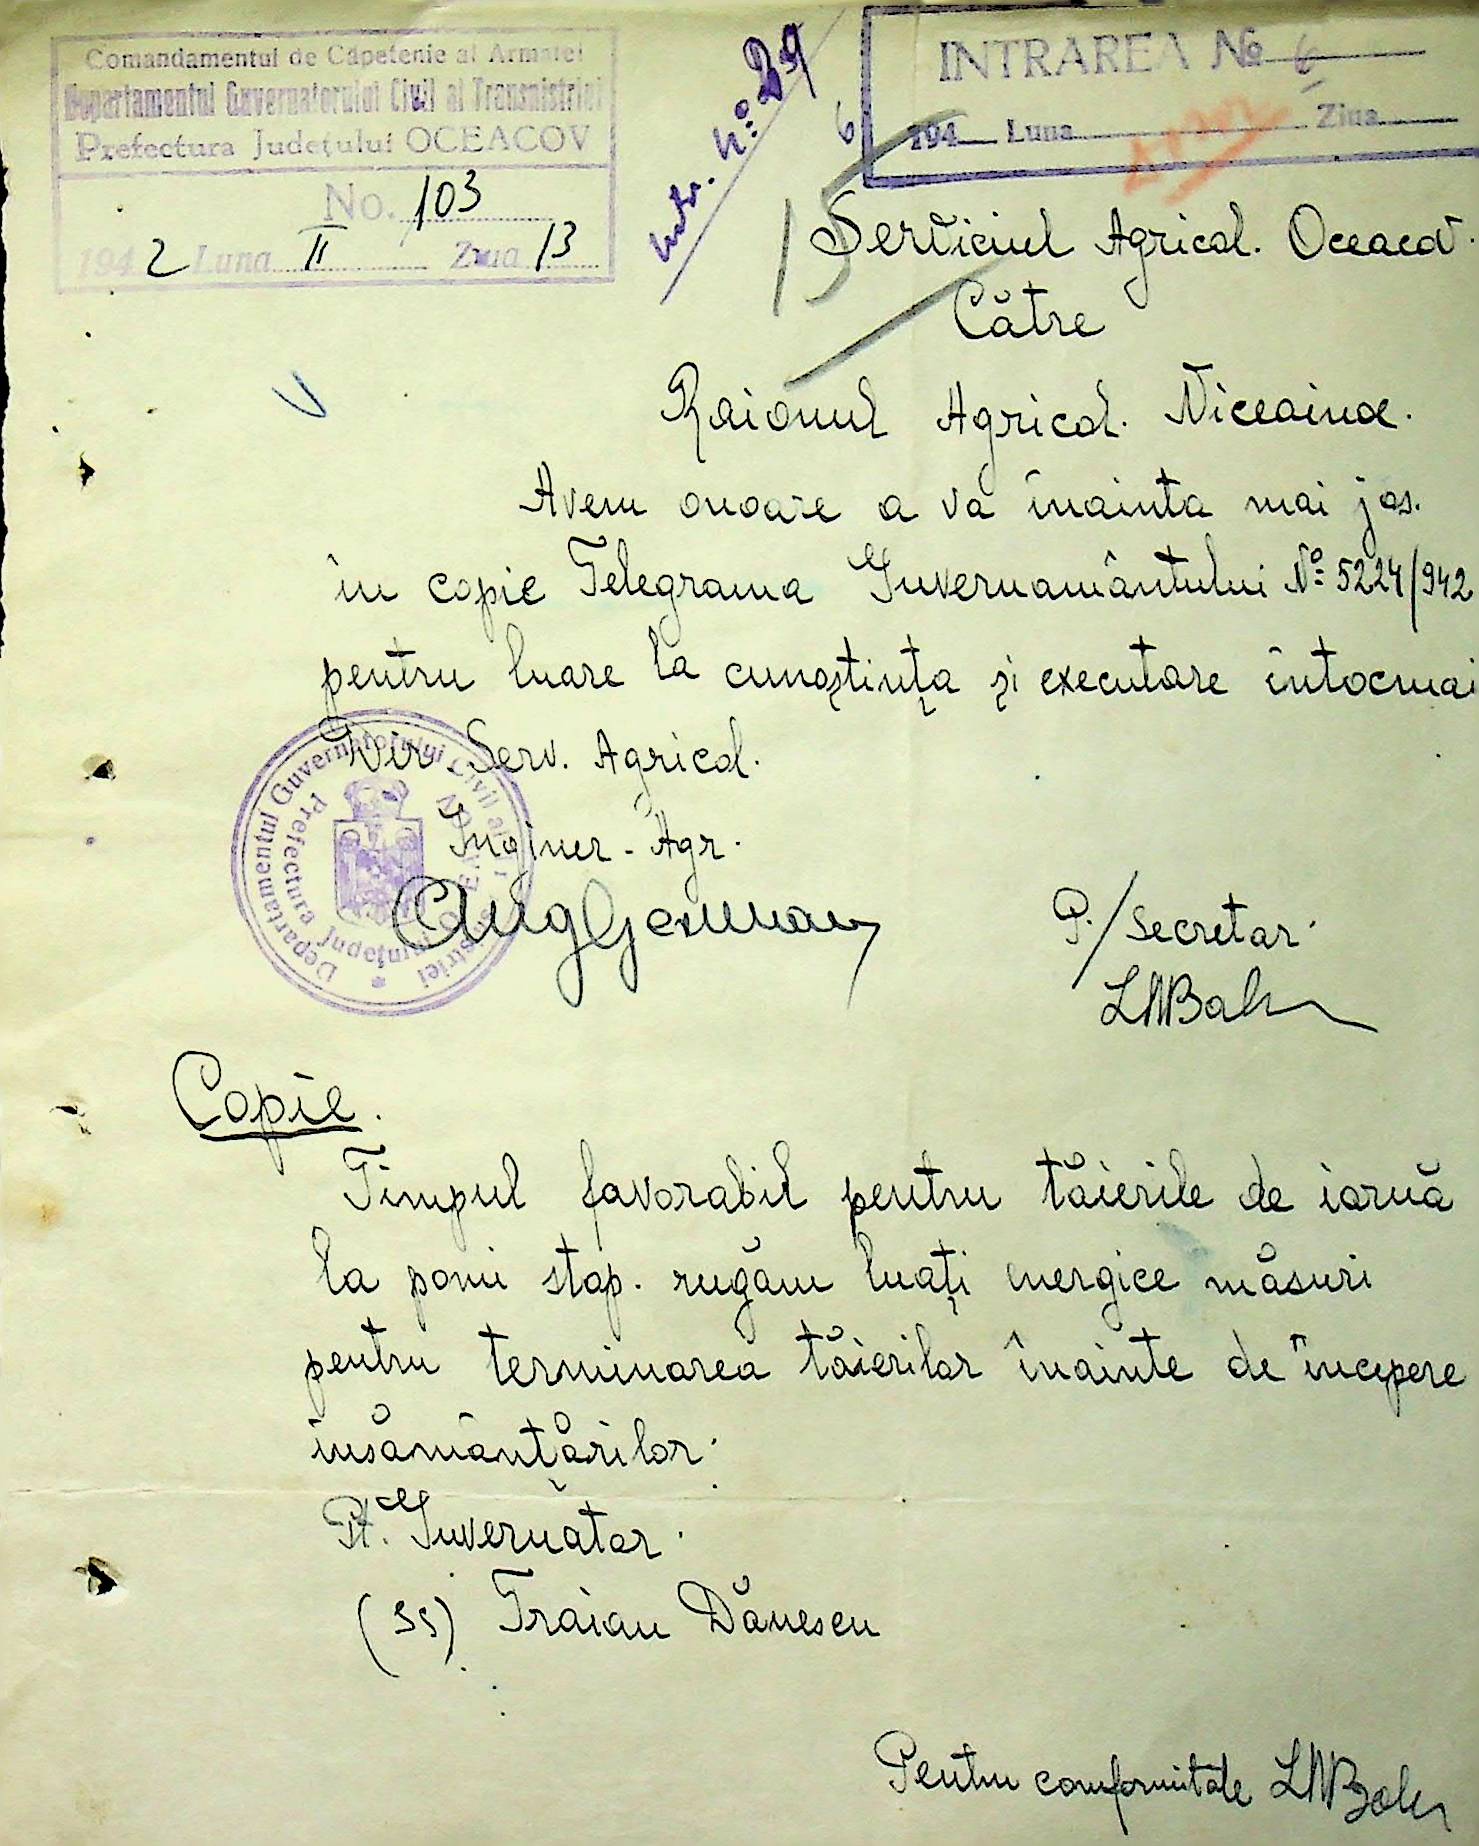 Comandamentul de Căpetenie al Armatei
Departamentul Guvernatorului Civil al Transnistriei
Prefectura Județului OCEACOV
No. 103
1942 Luna II Ziua 13
Intr. No: 29
INTRAREA No 6
194 Luna Ziua
Serviciul Agricol. Oceacov.
Către
Raionul Agricol.
Avem onoare a va înainta mai jos.
în copie Telegrama Guvernamântului No 5224/942
pentru luare la cunoștința și executare întocmai
Dir. Serv. Agricol.
Inginer-Agr.
Departamentul Guvernatorului Civil al Transnistriei
Prefectura Județului
P./Secretar.
Copie.
Timpul favorabil pentru tăierile de iarnă
la pomi stop. rugăm luați energice măsuri
pentru terminarea tăierilor înainte de începere
însămânțărilor.
Pt. Guvernator.
(ss) Traian Dănescu
Pentru conformitate